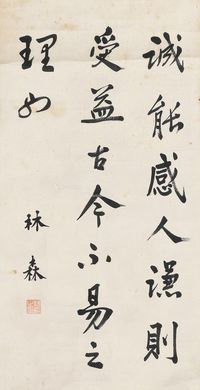 诚能感人谦则
受益古今不易之
理也
林森